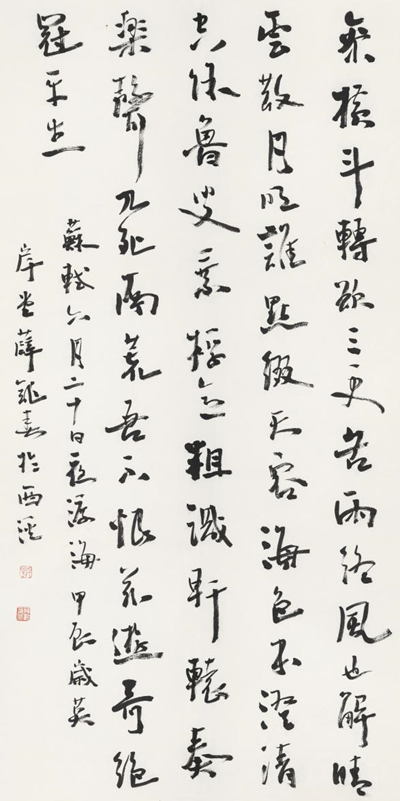 參橫斗轉欲三更苦雨終風也解晴
雲散月明誰點綴天容海色本澄清
空餘魯叟乘桴意粗識軒轅奏
樂聲九死南荒吾不恨茲遊奇絕
冠平生
蘇軾六月二十日夜渡海 甲辰歲莫
岸堂薛龍春於西溪